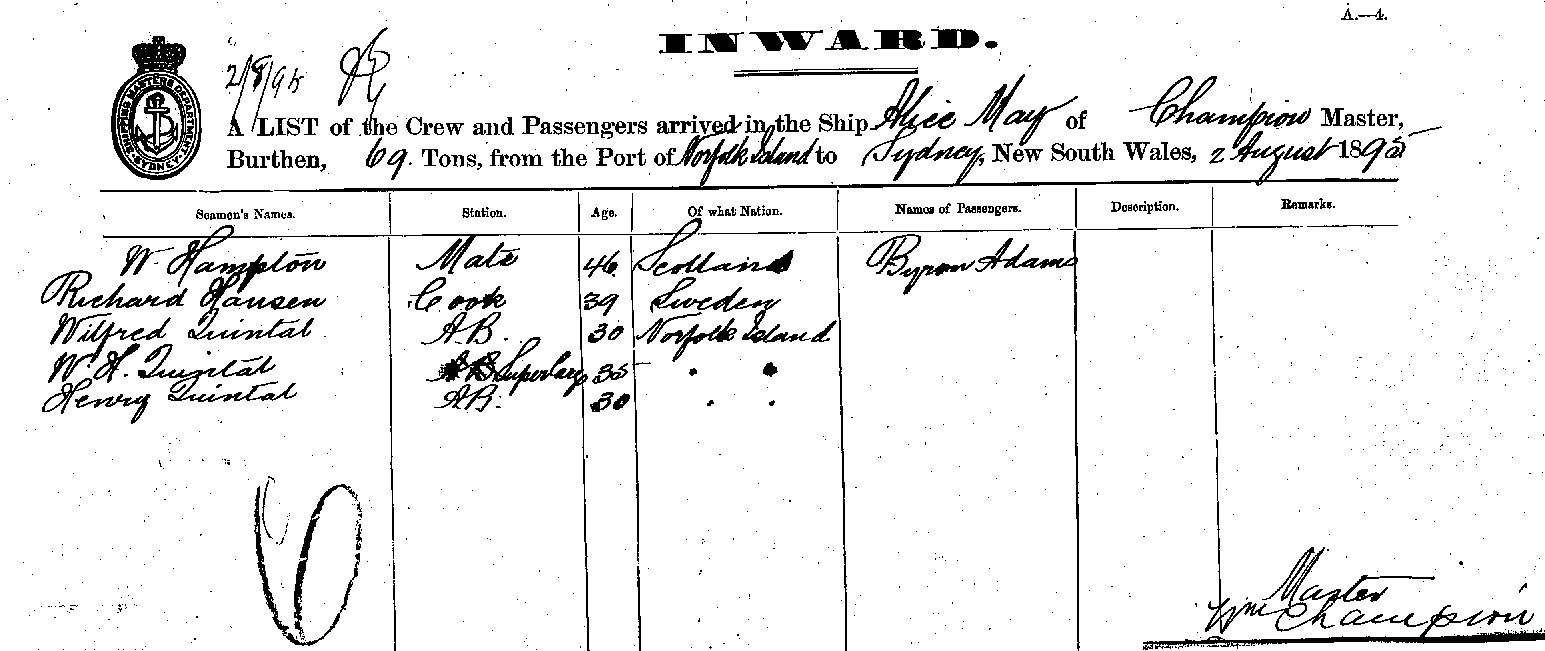 A.—4.
INWARD.
2/8/95
A LIST of the Crew and Passengers arrived in the Ship Alice May of Champion Master,
Burthen, 69 Tons, from the Port of Norfolk Island to Sydney, New South Wales, 2 August 1895
SHIPPING MASTERS DEPARTMENT N.S.W.
Seamen's Names. Station. Age. Of what Nation. Names of Passengers. Description. Remarks.
W Hampton Mate 46 Scotland Byron Adams
Richard Hansen Cook 39 Sweden
Wilfred Quintal A.B. 30 Norfolk Island
W. H. Quintal AB Supercargo 35 " "
Henry Quintal A.B. 30 " "
Master
Wm Champion